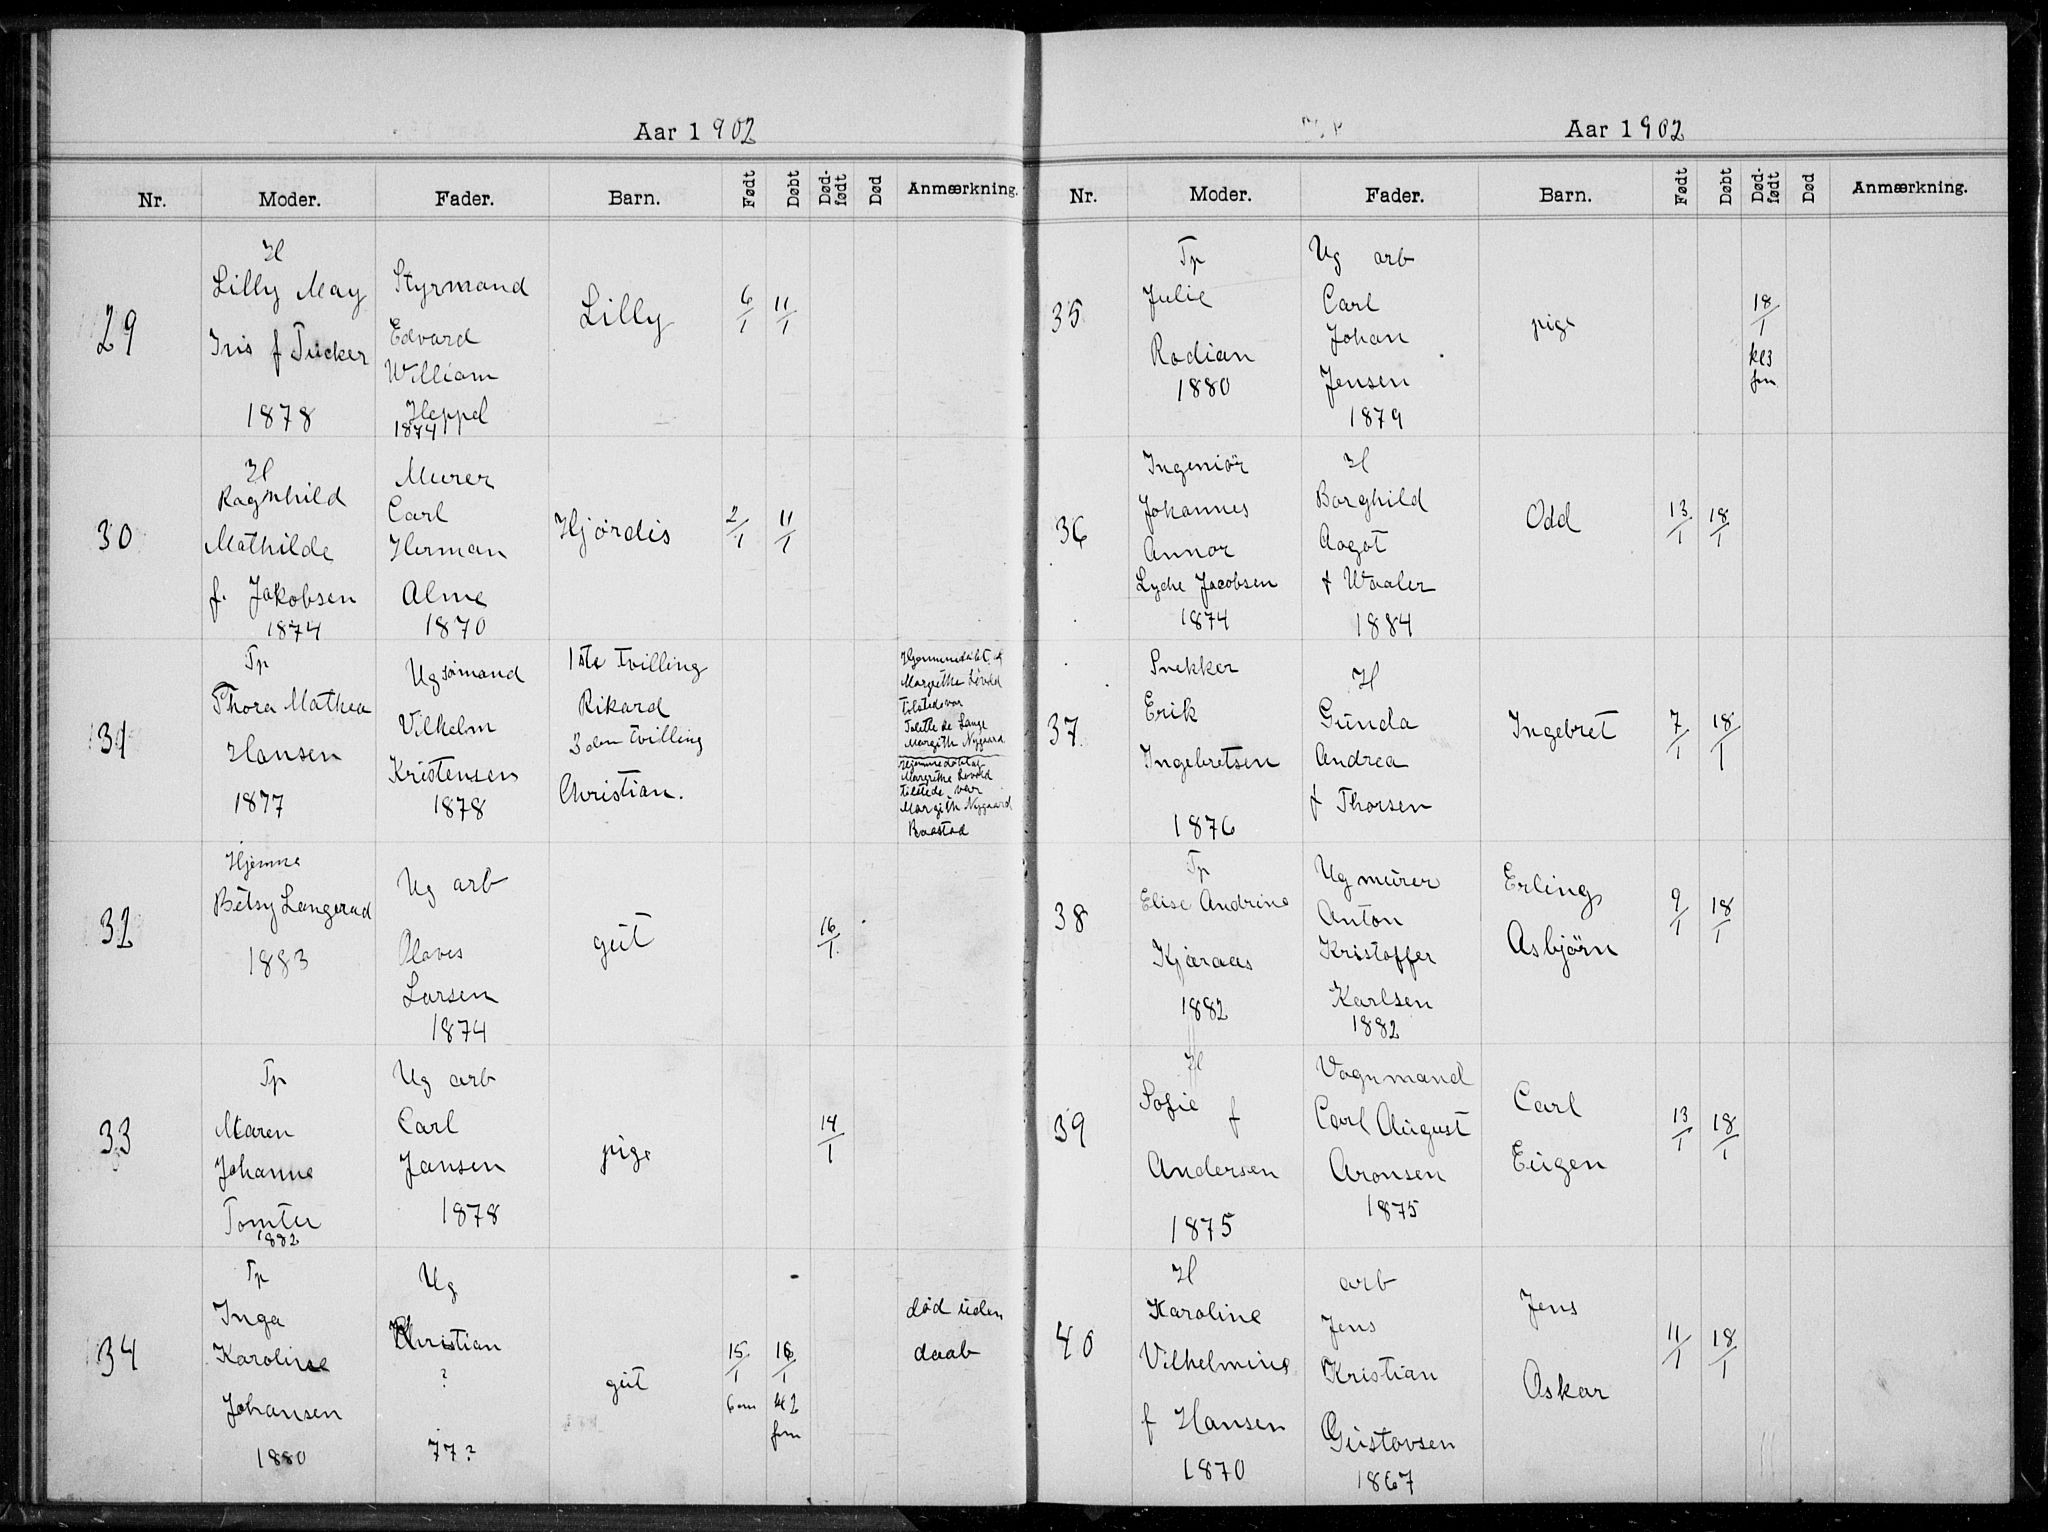 Aar 1902
Nr. Moder. Fader. Barn. Født Døbt Død-født Død Anmærkning.
29
H
Lilly May
Iris f Tucker
1878
Styrmand
Edvard
William
Heppel
1874
Lilly
6/1
11/1
30
H
Ragnhild
Mathilde
f. Jakobsen
1874
Murer
Carl
Herman
Alme
1870
Hjørdis
2/1
11/1
31
Tp
Thora Mathea
Hansen
1877
Ug sømand
Vilhelm
Kristensen
1878
1ste tvilling
Rikard
3den tvilling
Christian.
Hjemmedøbt af
Margrethe Løvold
tilstede var
de Lange
Margith Nygaard
Hjemmedøbt af
Margrethe Løvold
tilstede var
Margith Nygaard
Baastad
32
Hjemme
Betsy Langerud
1883
Ug arb
Olaves
Larsen
1874
gut
16/1
33
Tp
Maren
Johanne
Tomter
1882
Ug arb
Carl
Jansen
1878
pige
14/1
34
Tp
Inga
Karoline
Johansen
1880
Ug
Kristian
?
77?
gut
15/1
6 em
16/1
kl 2
fm
død uden
daab
Aar 1902
Nr. Moder. Fader. Barn. Født Døbt Død-født Død Anmærkning.
35
Tp
Julie
Rodian
1880
Ug arb
Carl
Johan
Jensen
1879
pige
18/1
kl 3
fm
36
Ingeniør
Johannes
Annar
Lyche Jacobsen
1874
H
Borghild
Aagot
f Waaler
1884
Odd
13/1
18/1
37
Snekker
Erik
Ingebretsen
1876
H
Gunda
Andrea
f Thorsen
Ingebret
7/1
18/1
38
Tp
Elise Andrine
Kjæraas
1882
Ug murer
Anton
Kristoffer
Karlsen
1882
Erling
Asbjørn
9/1
18/1
39
H
Sofie f
Andersen
1875
Vognmand
Carl August
Aronsen
1875
Carl
Eugen
13/1
18/1
40
H
Karoline
Vilhelmine
f Hansen
1870
arb
Jens
Kristian
Gustavsen
1867
Jens
Oskar
11/1
18/1